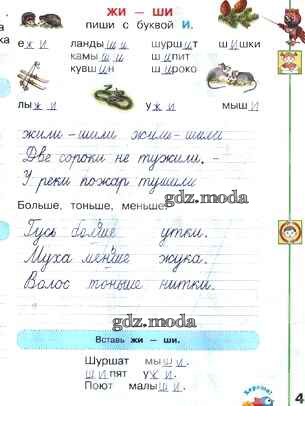 ЖИ – ШИ
пиши с буквой И.
ежи ландыши шуршит шишки
камыши шипит
кувшин широко
лыжи ужи мыши
жили – шили жили – шили
Две сороки не тужили. –
У реки пожар тушили
gdz.moda
Больше, тоньше, меньше.
Гусь больше утки.
Муха меньше жука.
Волос тоньше нитки.
gdz.moda
Вставь жи – ши.
Шуршат мыши.
Шипят ужи.
Поют малыши.
Хорошо!
4